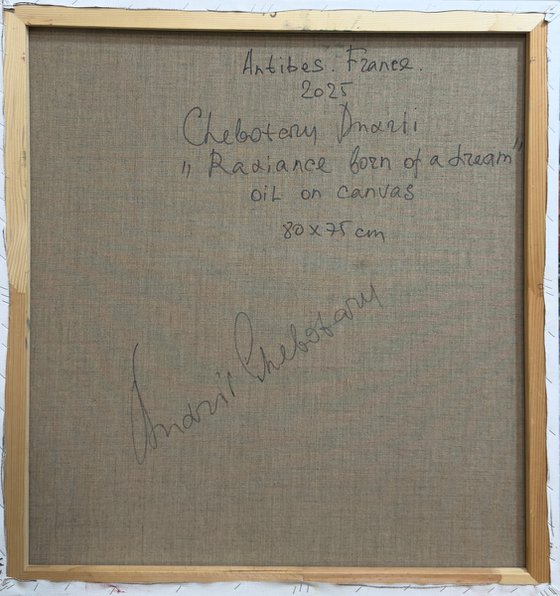 Antibes. France.
2025
Chebotary Andrii
„ Radiance born of a dream"
oil on canvas
80 x 75 cm
Andrii Chebotary